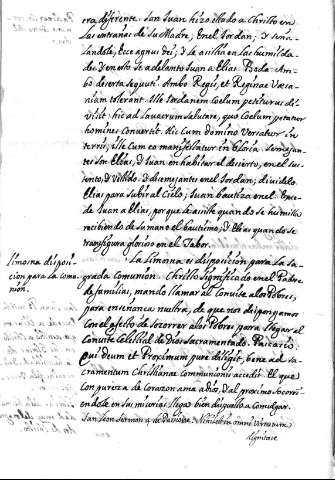 era diferente. San Juan hizo illado a Christo en
las entrañas de su Madre, en el Jordan, y seña
landole, Ecce agnus dei, y le asistia en las humilda
des y en esto se adelanto Juan a Elias. Beda. Am
bo deserta sequuti Ambo Regis, et Reginae Vesa
niam tolerant. Ille Jordanem Coelum petiturus di
visit hic ad lavacrum salutare, quo Coelum petatur
homines Convertit. Hic Cum domino Versatur in
terris, Ille Cum eo manifestatur in Gloria. Semejan
tes son Elias, y Juan en habitar el desierto, en el sus
tento, y Vestido. y desemejantes en el Jordan; dividelo
Elias para subir al Cielo; Juan bautiza en el
de Juan a Elias, por que le asiste quando se humilla
recibiendo de su mano el bautismo; y Elias quando se
transfigura glorioso en el Tabor.
Limosna disposi
cion para la comu
nion.
La limosna es disposicion para la sa
grada Comunion. Christo significado en el Padre
de familias, mando llamar al Convite a los Pobres,
para enseñanca nuestra, de que nos dispongamos
Con el afecto de socorrer a los Pobres para llegar al
Convite Celestial de Dios Sacramentado.
qui deum et Proximum pure deligit, bene ad sa
cramentum Christianae Communionis accedit. El que
Con pureza de Corazon ama a dios, y al proximo socorri
endole en sus miserias llega bien dispuesto a Comulgar.
San Leon sermon 4 de Nemo est in omni
dignitate